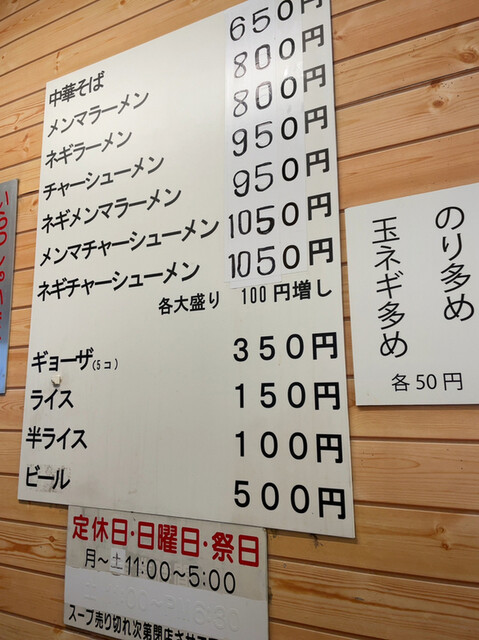 中華そば 650円
メンマラーメン 800円
ネギラーメン 800円
チャーシューメン 950円
ネギメンマラーメン 950円
メンマチャーシューメン 1050円
ネギチャーシューメン 1050円
各大盛り 100円増し
ギョーザ(5コ) 350円
ライス 150円
半ライス 100円
ビール 500円
のり多め
玉ネギ多め
各50円
定休日・日曜日・祭日
月～土 11:00～5:00
スープ売り切れ次第閉店させ